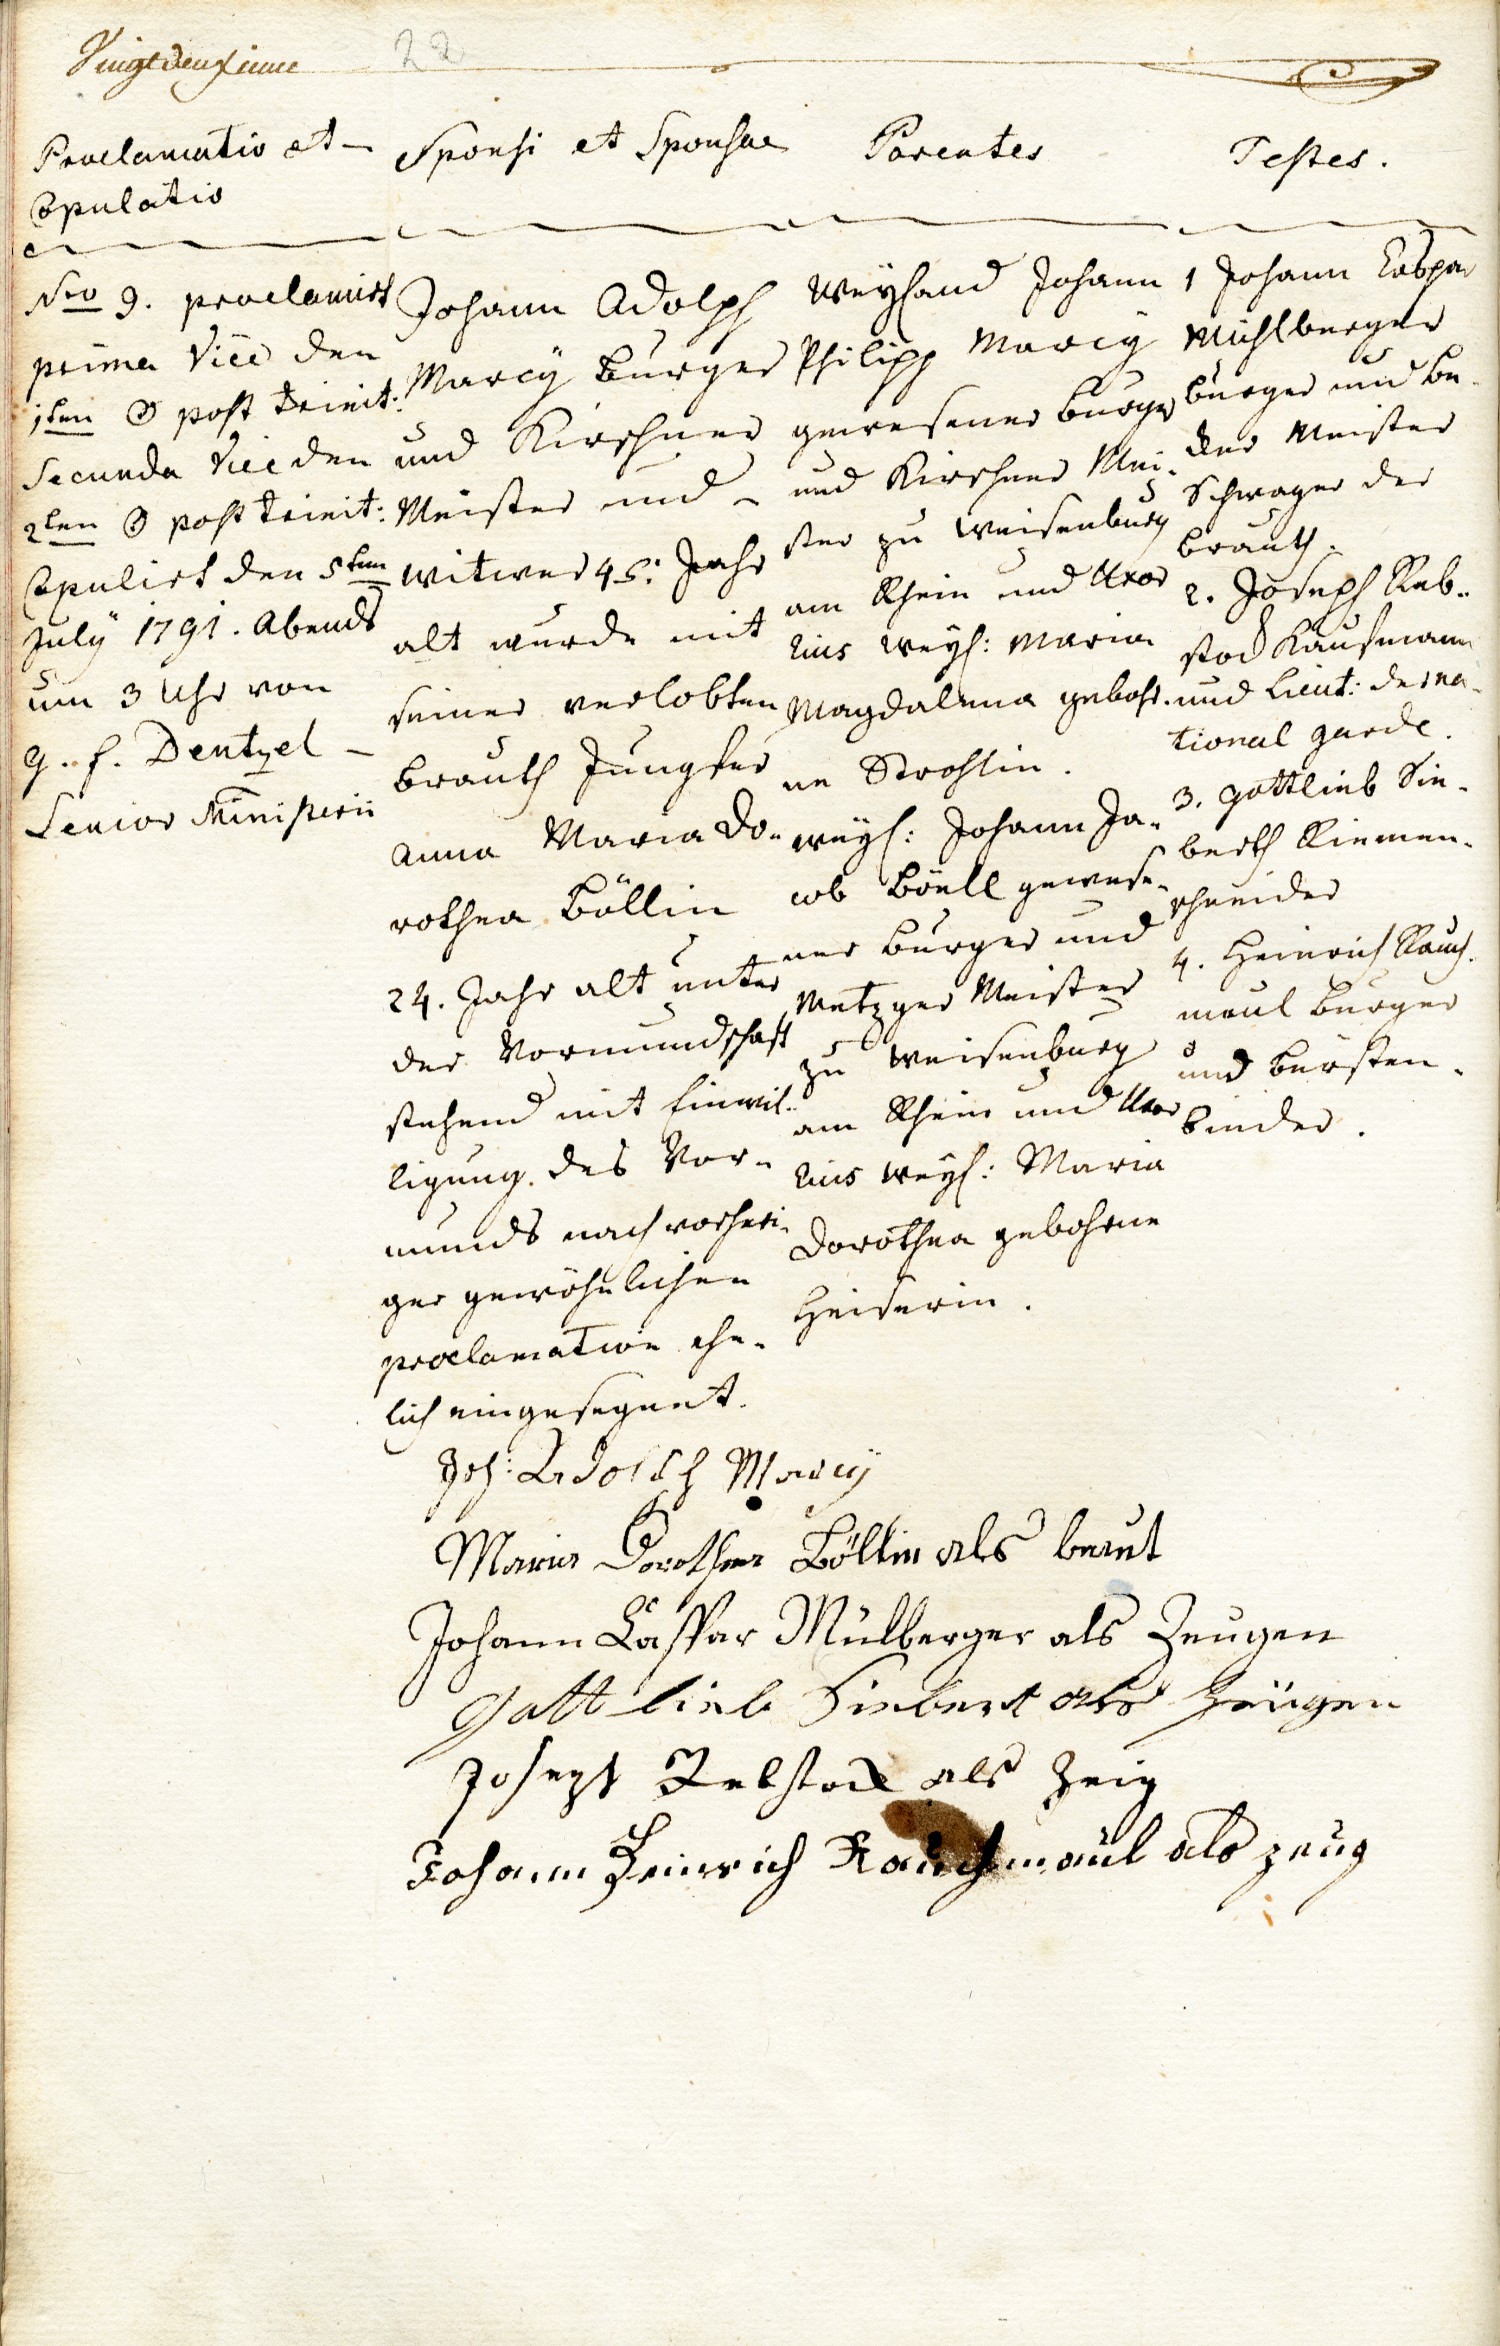 Vingt deuxieme
22
Proclamatio et
Copulatio
Sponsi et Sponsae
Parentes
Testes.
Nro 9. proclamirt
prima Vice den
1ten post trinit:
Secunda Vice den
2ten post trinit:
Copulirt den 5ten
July 1791. Abends
um 3 Uhr von
g. f. Dentzel
Senior Ministerii
Johann Adolph
Marcÿ Burger
und Kirschner
Meister und
witwer 45: Jahr
alt wurde mit
seiner verlobten
brauth Jungfer
Anna Maria Do-
rothea Böllin
24. Jahr alt unter
der Vormundschaft
stehend mit Einwil-
ligung des Vor-
munds nach vorheri-
ger gewöhnlichen
proclamation ehe-
lich eingesegnet.
Weyland Johann
Philipp Marcÿ
gewesener burger
und Kirschner Mei-
ster zu Weisenburg
am Rhein und Uxor
Eius weyl: Maria
Magdalena gebohr-
ne Strohlin.
weyl: Johann Ja-
cob Böell gewese-
ner burger und
Metzger Meister
zu Weisenburg
am Rhein und Uxor
Eius weyl: Maria
Dorothea gebohrne
Heiserin.
1 Johann Caspar
Mühlberger
burger und be-
cker Meister
Schwager der
brauth.
2. Joseph Reb-
stock Kaufmann
und Lieut: der na-
tional garde.
3. gottlieb Sie-
berth Riemen-
schneider
4. Heinrich Rauch-
maul burger
und bürsten-
binder.
Joh: Adolph Marcÿ
Maria Dorothea Böllin als braut
Johann Caspar Mülberger als Zeugen
Gottlieb Siebert als Zeugen
Joseph Rebstock als Zeig
Johann Heinrich Rauchmaul als zeug